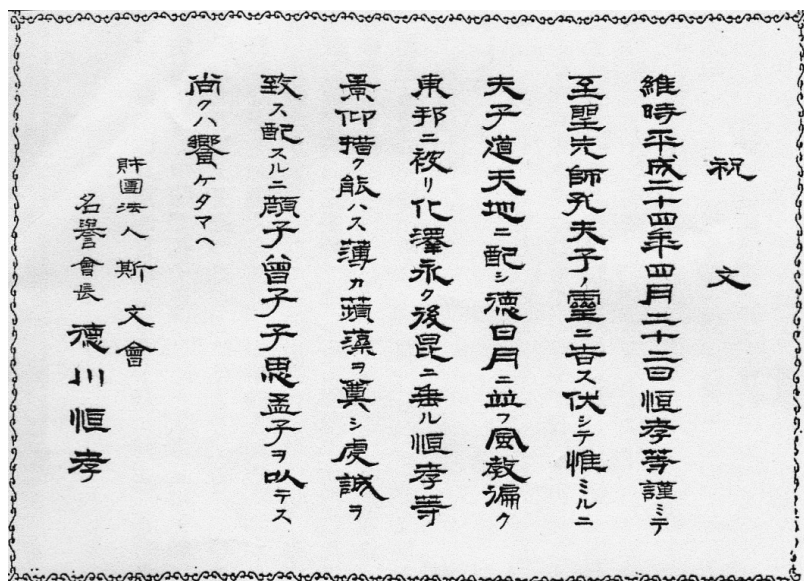 祝文
維時平成二十四年四月二十二日恒孝等謹ミテ
至聖先師孔夫子ノ靈ニ告ス伏シテ惟ミルニ
夫子道天地ニ配シ德日月ニ竝フ風教徧ク
東邦ニ被リ化澤永ク後昆ニ垂ル恒孝等
景仰措ク能ハス薄カ蘋藻ヲ奠シ虔誠ヲ
致ス配スルニ顏子曾子子思孟子ヲ以テス
尚クハ饗ケタマヘ
財團法人斯文會
名譽會長 德川恒孝